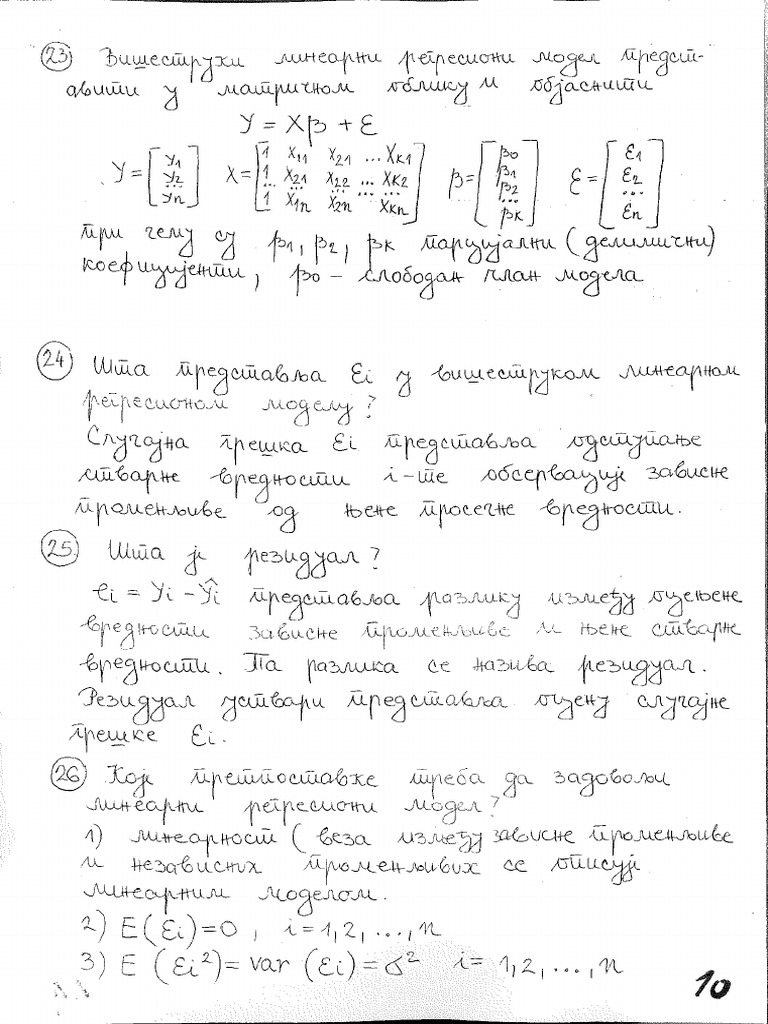 23) Вишеструки линеарни регресиони модел предст-
авити у матричном облику и објаснити
У = Xβ + ε
У = [y1 y2 ... yn] X = [1 X11 X21 ... Xk1 1 X21 X22 ... Xk2 ... ... ... ... 1 X1n X2n ... Xkn] β = [β0 β1 β2 ... βk] ε = [ε1 ε2 ... εn]
при чему су β1, β2, βk парцијални (делимични)
коефицијенти, β0 – слободан члан модела
24) Шта представља εi у вишеструком линеарном
регресионом моделу?
Случајна грешка εi представља одступање
стварне вредности i-те обсервације зависне
променљиве од њене просечне вредности.
25. Шта је резидуал?
ei = yi - ŷi представља разлику између оцењене
вредности зависне променљиве и њене стварне
вредности. Та разлика се назива резидуал.
Резидуал уствари представља оцену случајне
грешке εi.
26) Које претпоставке треба да задовољи
линеарни регресиони модел?
1) линеарност (веза између зависне променљиве
и независних променљивих се описује
линеарним моделом.
2) E(εi)=0, i=1,2,...,n
3) E (εi²)= var (εi)=σ² i= 1,2,...,n
10